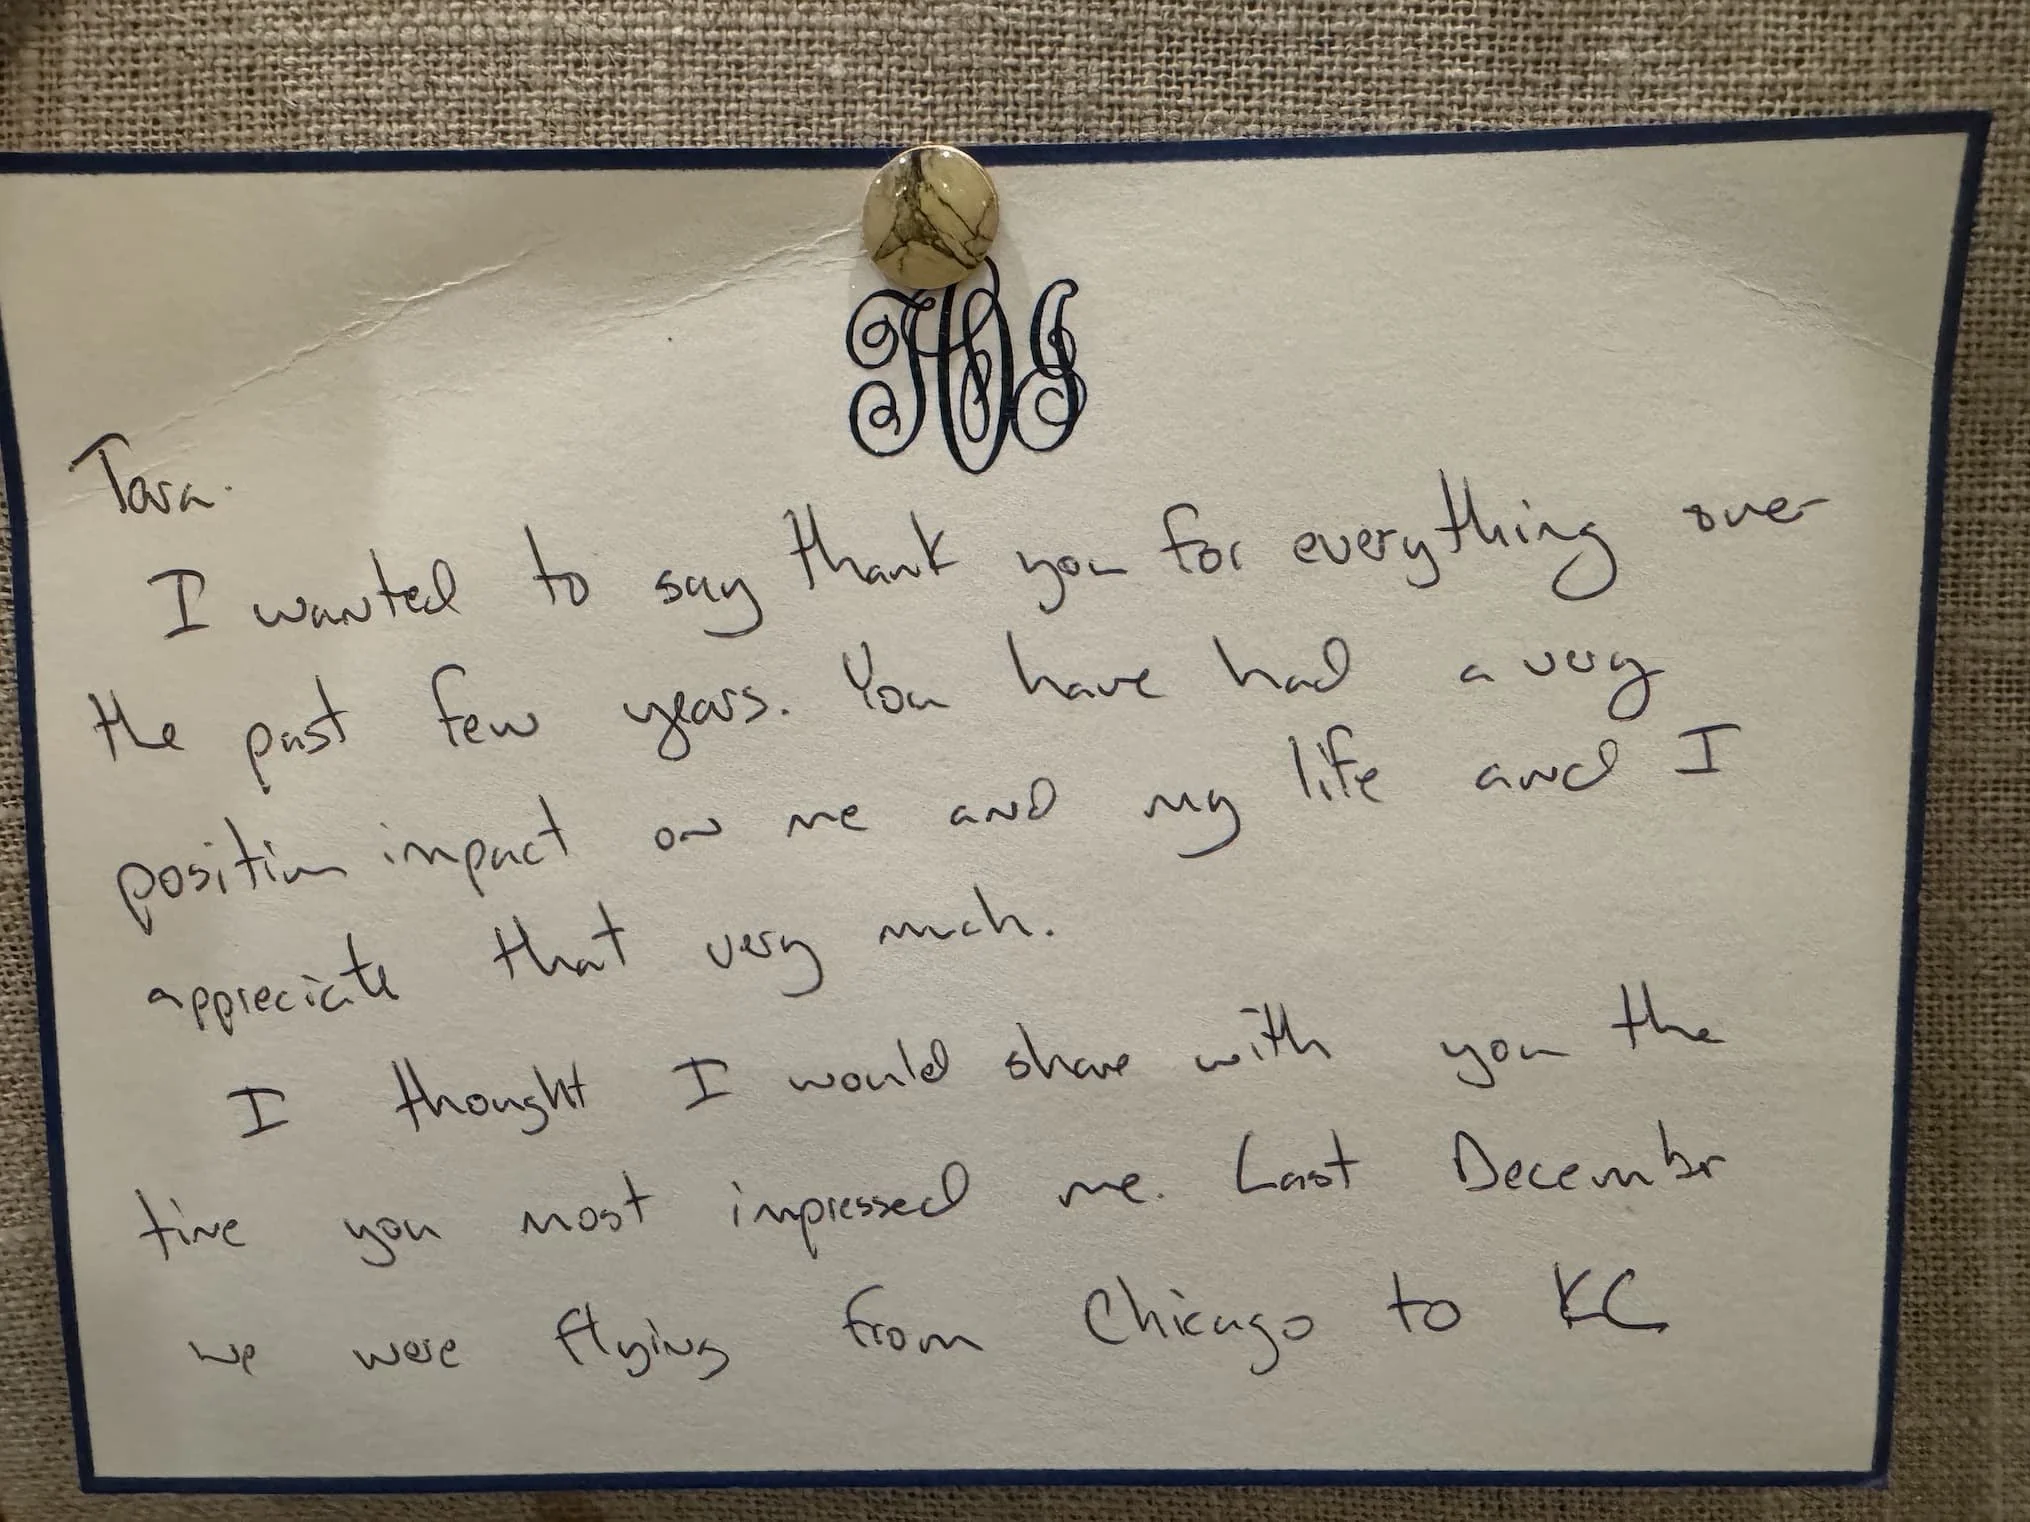 Tara.
I wanted to say thank you for everything over
the past few years. You have had a very
positive impact on me and my life and I
appreciate that very much.
I thought I would share with you the
time you most impressed me. Last December
we were flying from Chicago to KC